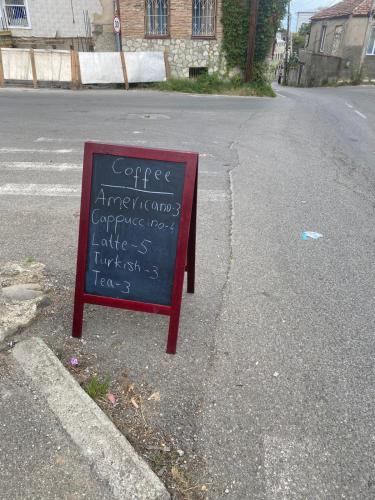 Coffee
Americano-3
Cappuccino-4
Latte-5
Turkish-3
Tea-3